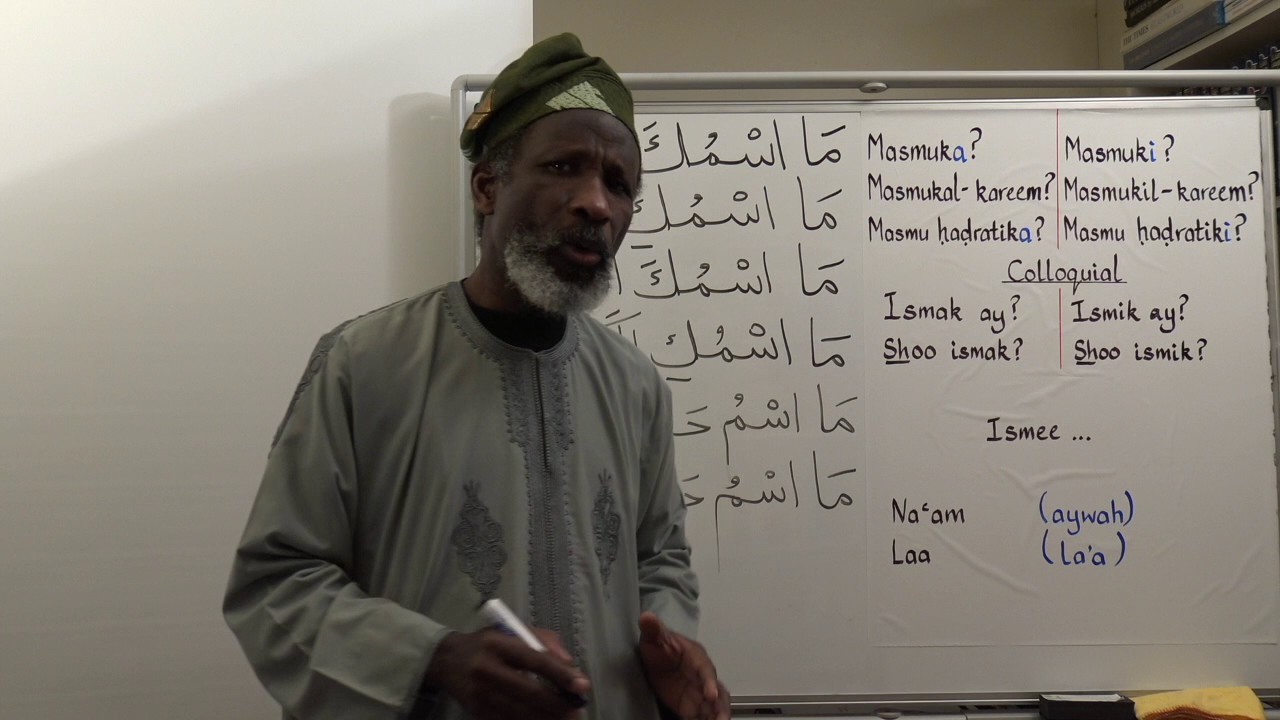 مَا اسْمُكَ
مَا اسْمُكِ
مَا اسْمُكَ
مَا اسْمُكِ
مَا اسْمُ
مَا اسْمُ
Masmuka? Masmuki?
Masmukal-kareem? Masmukil-kareem?
Masmu ḥaḍratika? Masmu ḥaḍratiki?
Colloquial
Ismak ay? Ismik ay?
Shoo ismak? Shoo ismik?
Ismee ...
Na‘am (aywah)
Laa (la'a)